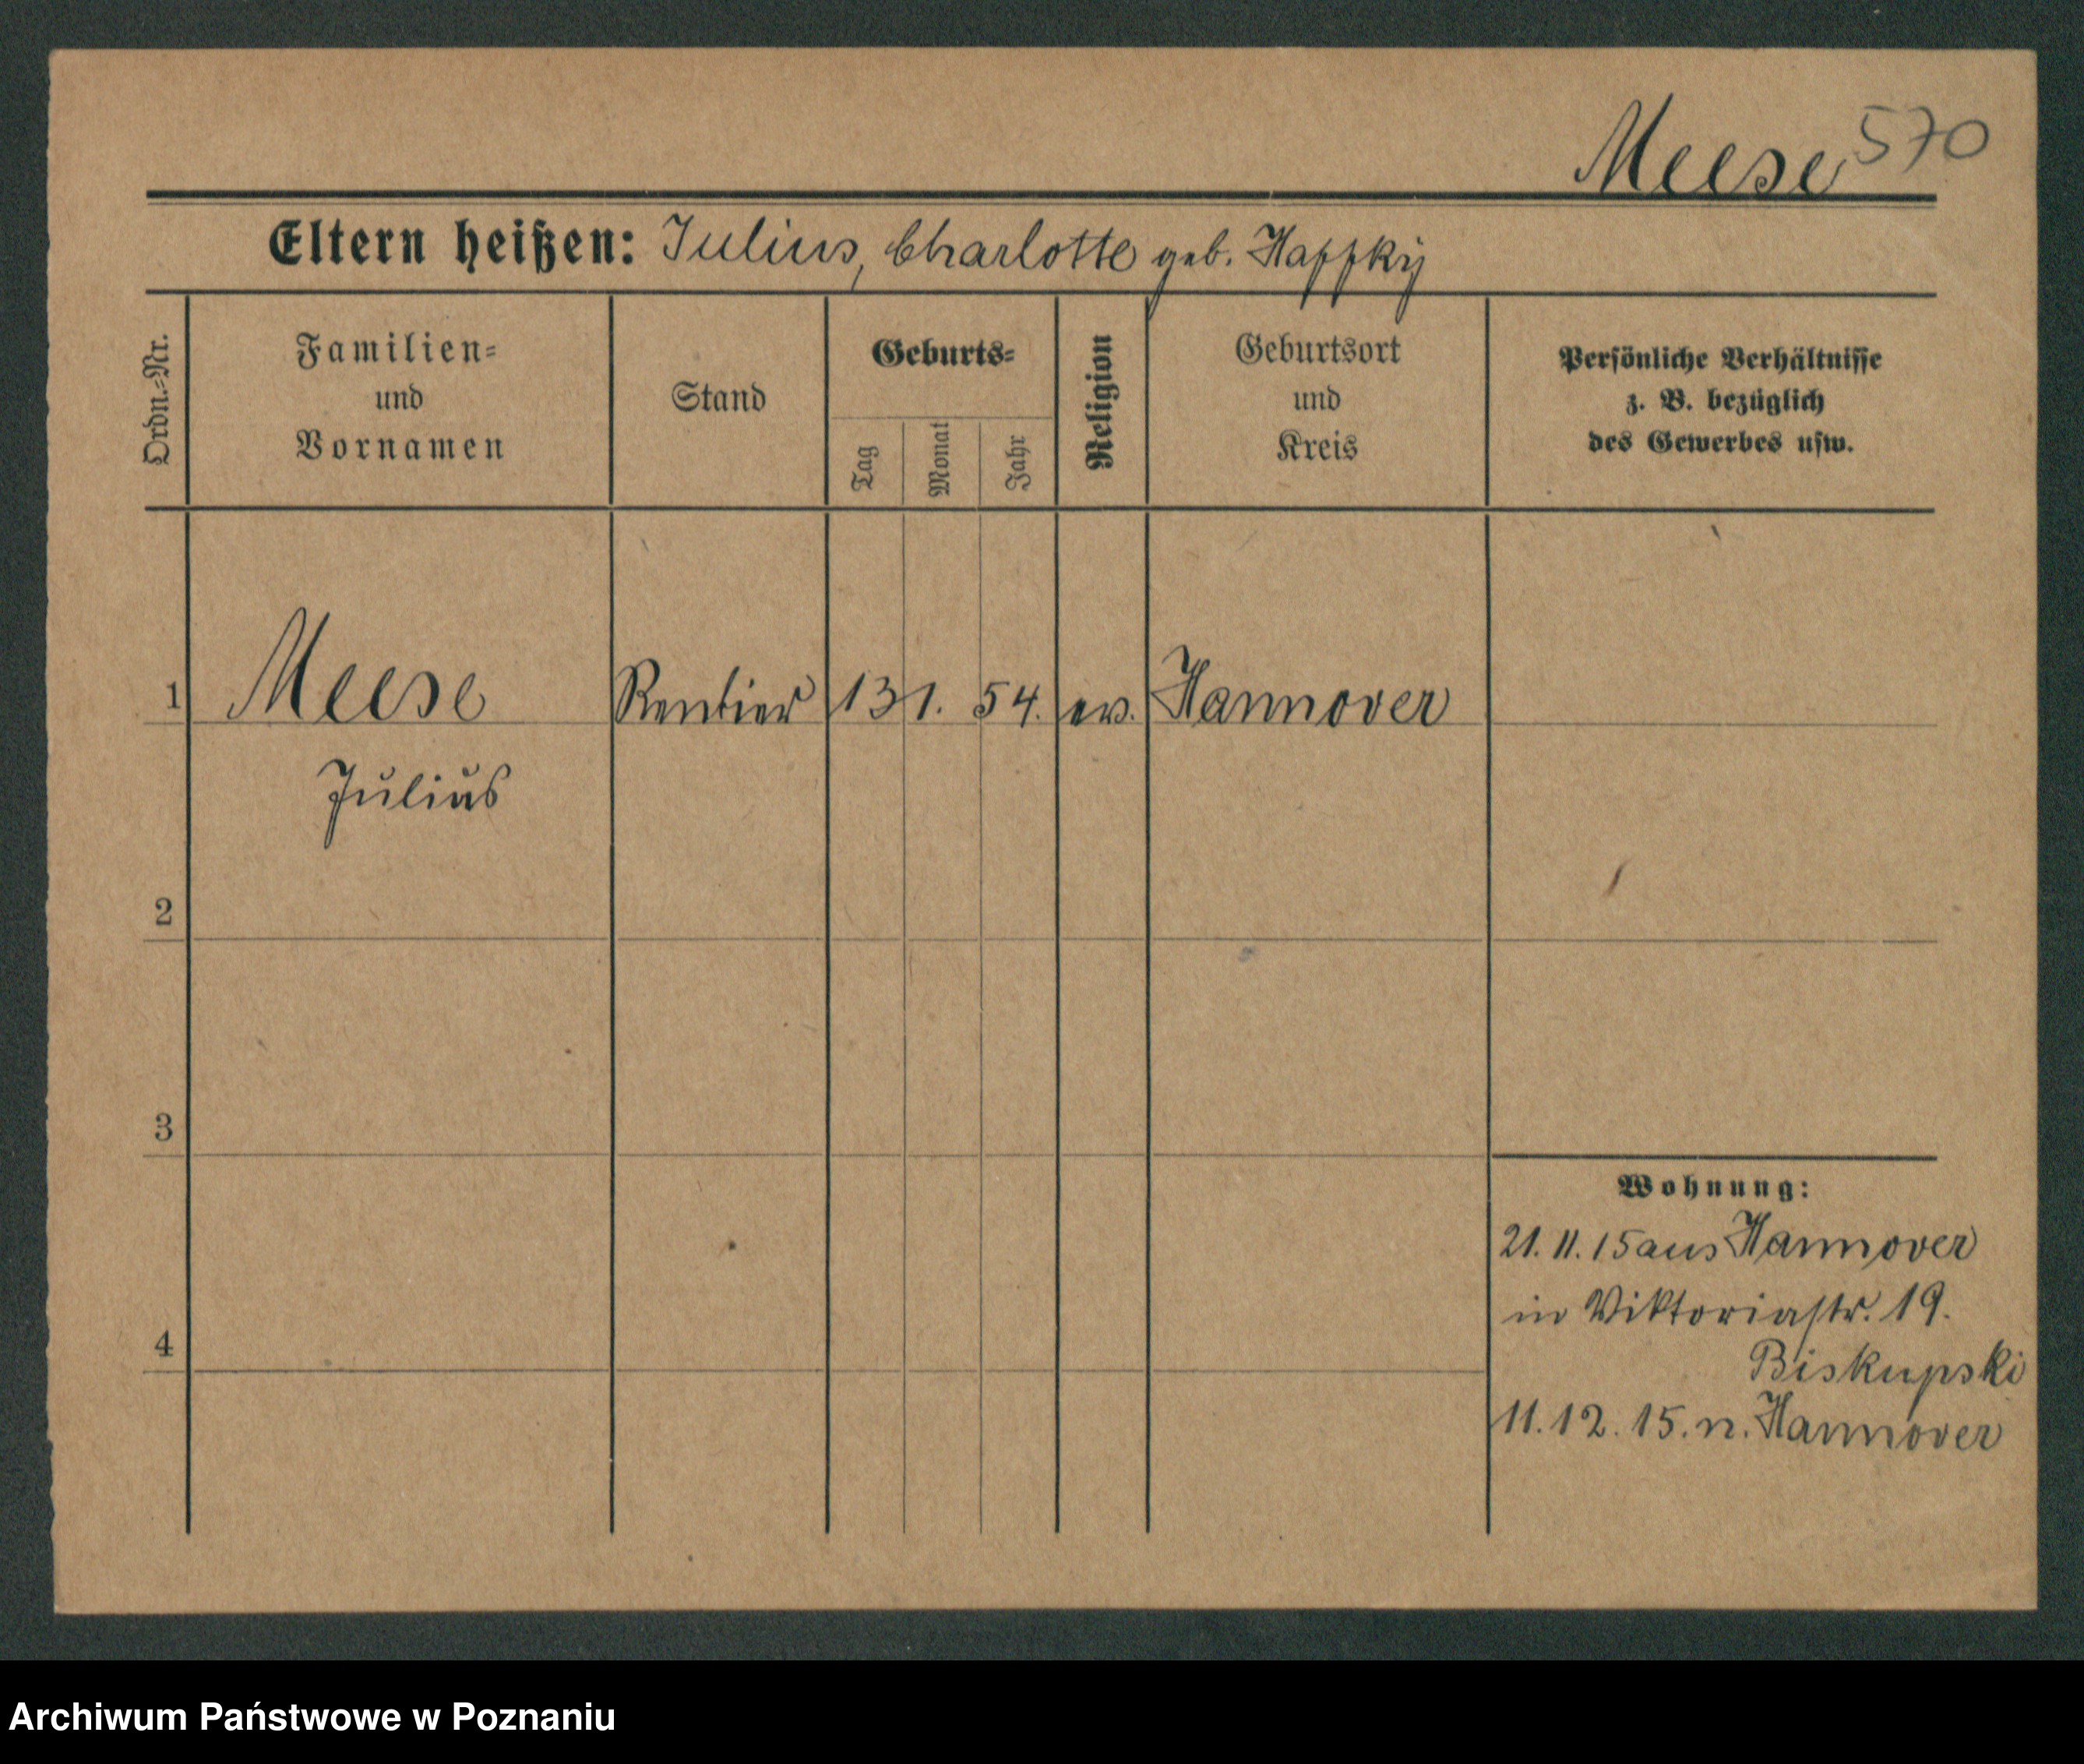 Meese 570
Eltern heißen: Julius, Charlotte geb. Happky
Ordn.-Nr.
Familien-
und
Vornamen
Stand
Geburts-
Tag
Monat
Jahr
Religion
Geburtsort
und
Kreis
Persönliche Verhältnisse
z. B. bezüglich
des Gewerbes usw.
1 Meese Rentier 13 1. 54. ev. Hannover
Julius
2
3
4
Wohnung:
21. 11. 15 aus Hannover
in Viktoriastr. 19.
Biskupski
11. 12. 15. n. Hannover
Archiwum Państwowe w Poznaniu